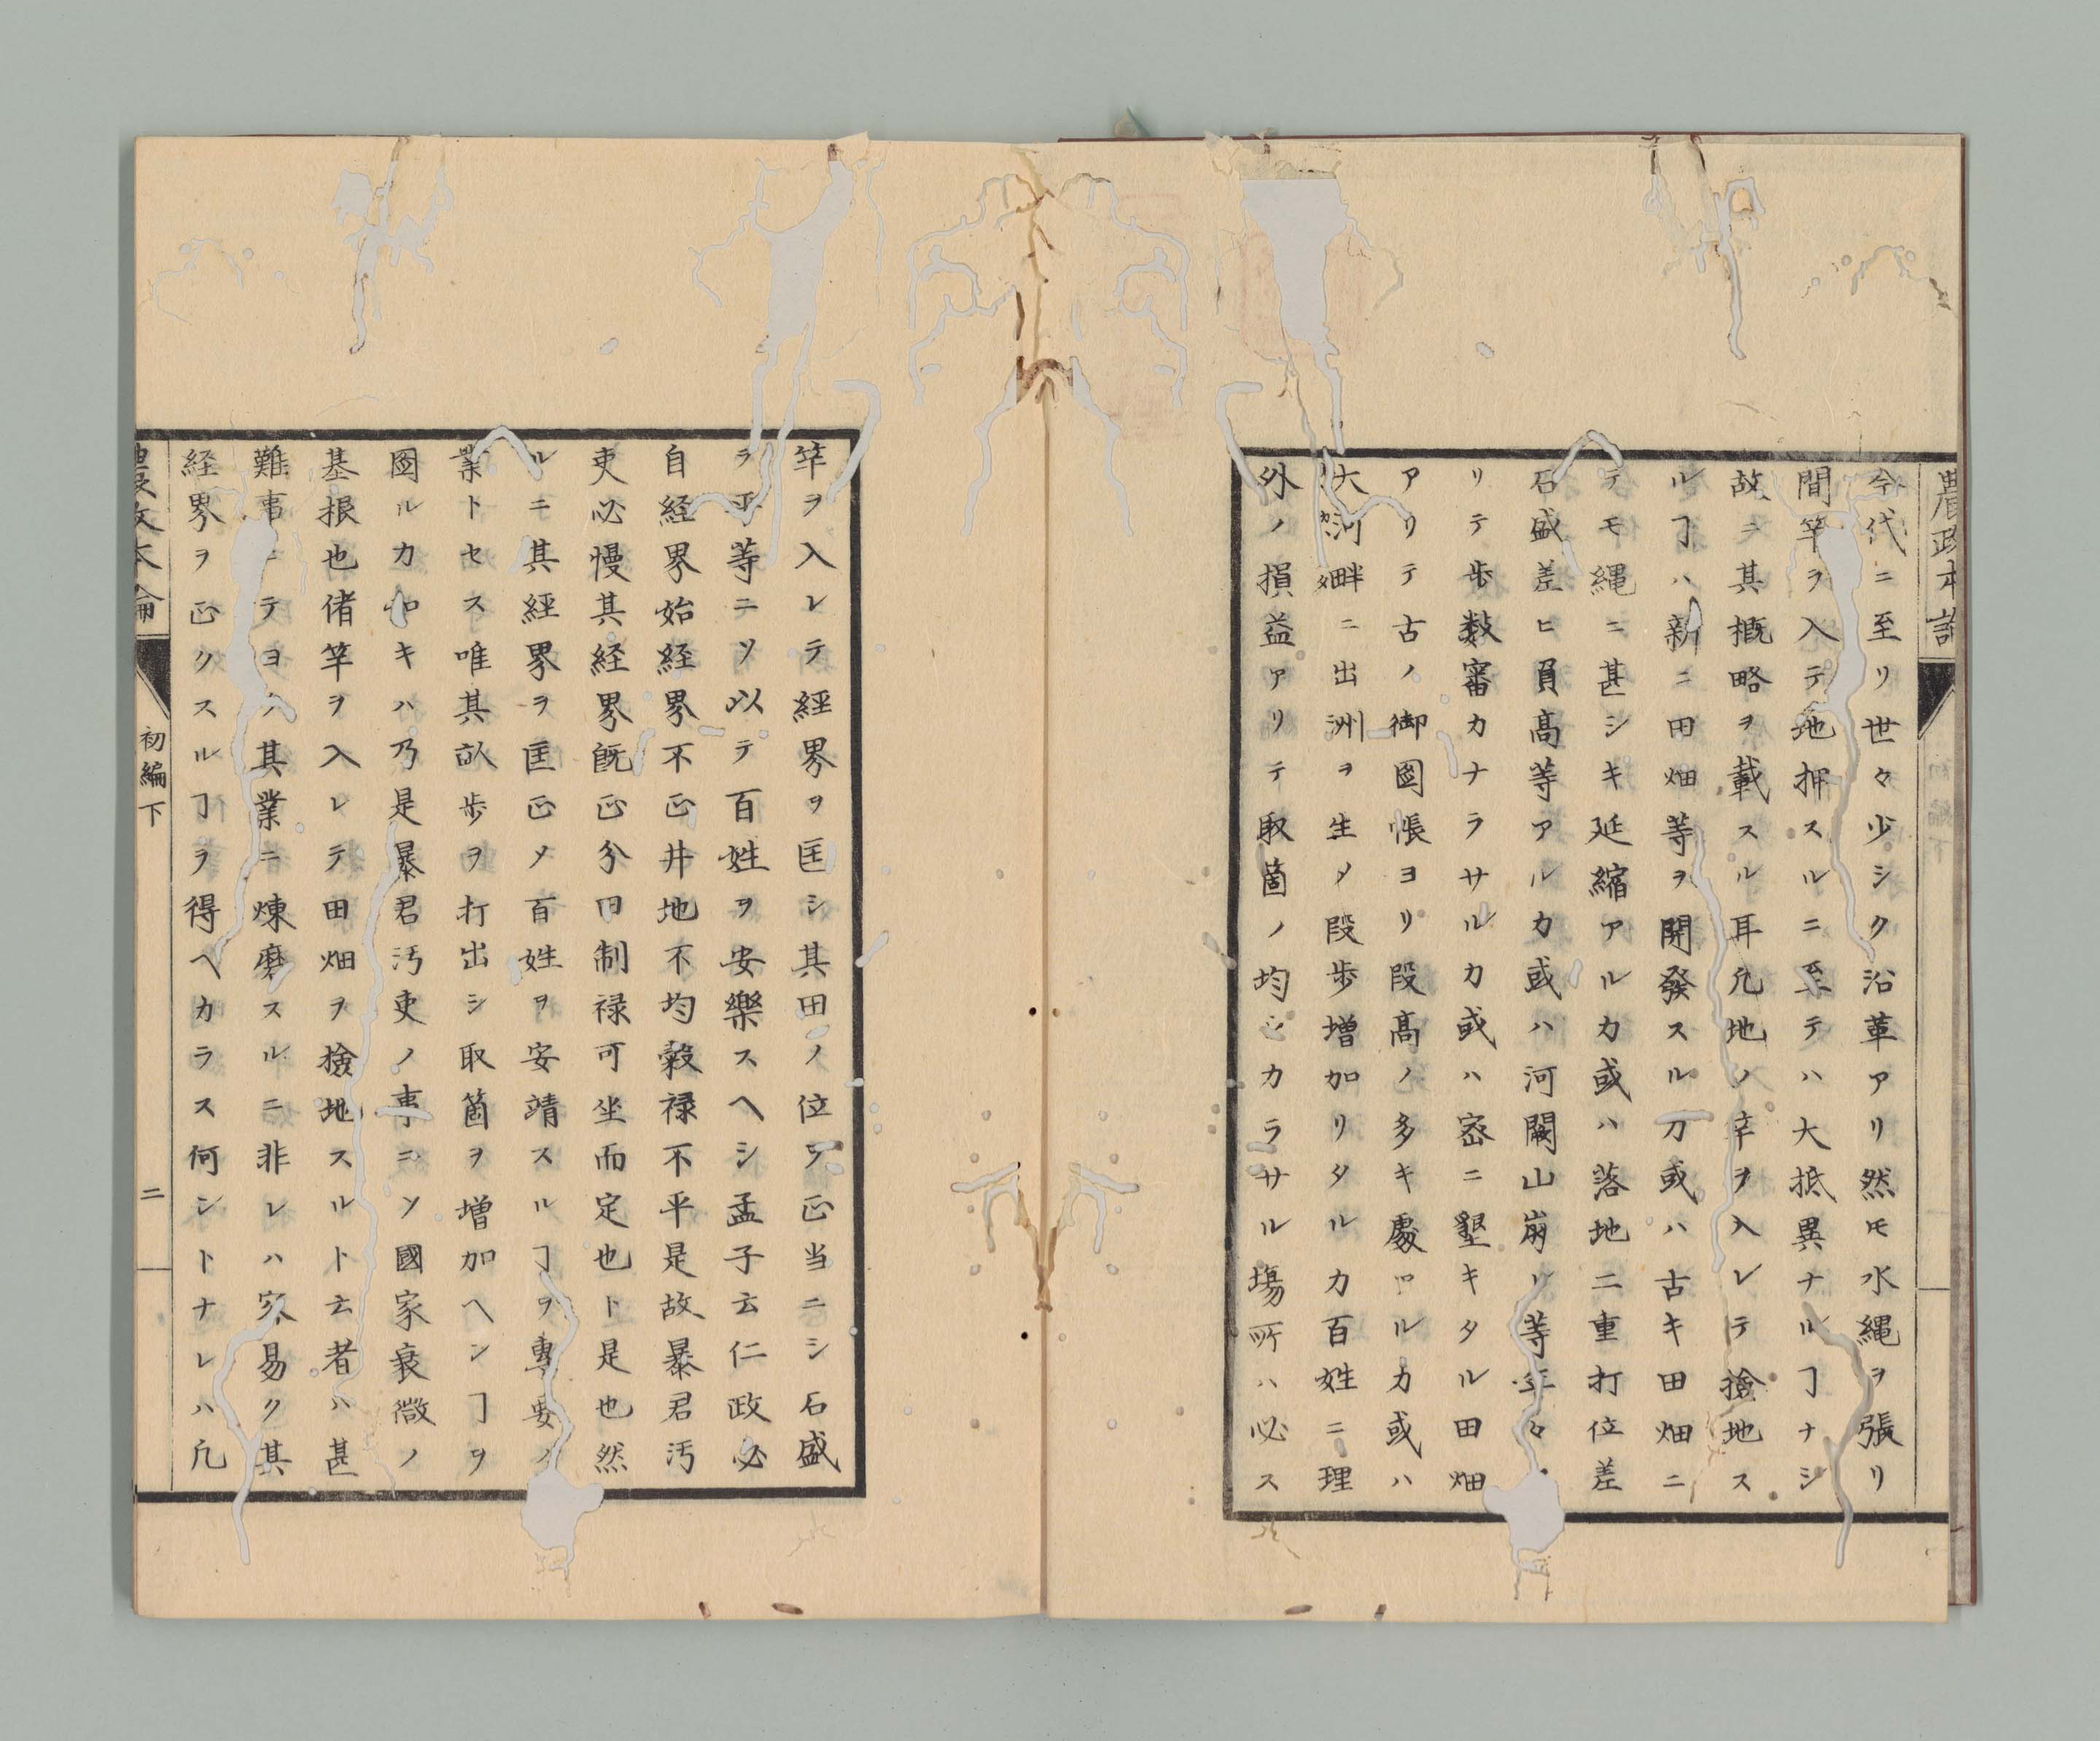 今代ニ至リ世々少シク沿革アリ然モ水縄ヲ張リ
間竿ヲ入テ地押スルニ至テハ大抵異ナルヿナシ
故ニ其概略ヲ載スル耳凢地ノ竿ヲ入レテ撿地ス
ルヿハ新ニ田畑等ヲ開發スルカ或ハ古キ田畑ニ
テモ縄ニ甚シキ延縮アルカ或ハ落地二重打位差
石盛差ヒ員高等アルカ或ハ河闕山崩リ等年々
リテ歩数審カナラサルカ或ハ宻ニ墾キタル田畑
アリテ古ノ御圖帳ヨリ段高ノ多キ處アルカ或ハ
大河畔ニ出洲ヲ生メ段歩増加リタルカ百姓ニ理
外ノ損益アリテ取箇ノ均シカラサル塲所ハ必ス
農政本論
竿ヲ入レテ經界ヲ匡シ其田ノ位ヲ正当ニシ石盛
ヲ平等ニソ以テ百姓ヲ安樂スヘシ孟子云仁政必
自経界始経界不正井地不均穀禄不平是故暴君汚
吏必慢其経界既正分田制禄可坐而定也ト是也然
ルニ其經界ヲ匡正メ百姓ヲ安靖スルヿヲ専要ノ
業トセス唯其畝歩ヲ打出シ取箇ヲ増加ヘンヿヲ
圖ルカ如キハ乃是暴君汚吏ノ事ニソ國家衰微ノ
基根也偖竿ヲ入レテ田畑ヲ撿地スルト云者ハ甚
難事ニテヨク其業ニ煉磨スルニ非レハ容易ク其
経界ヲ正クスルヿヲ得ヘカラス何シトナレハ凢
農政本論
初編下
二